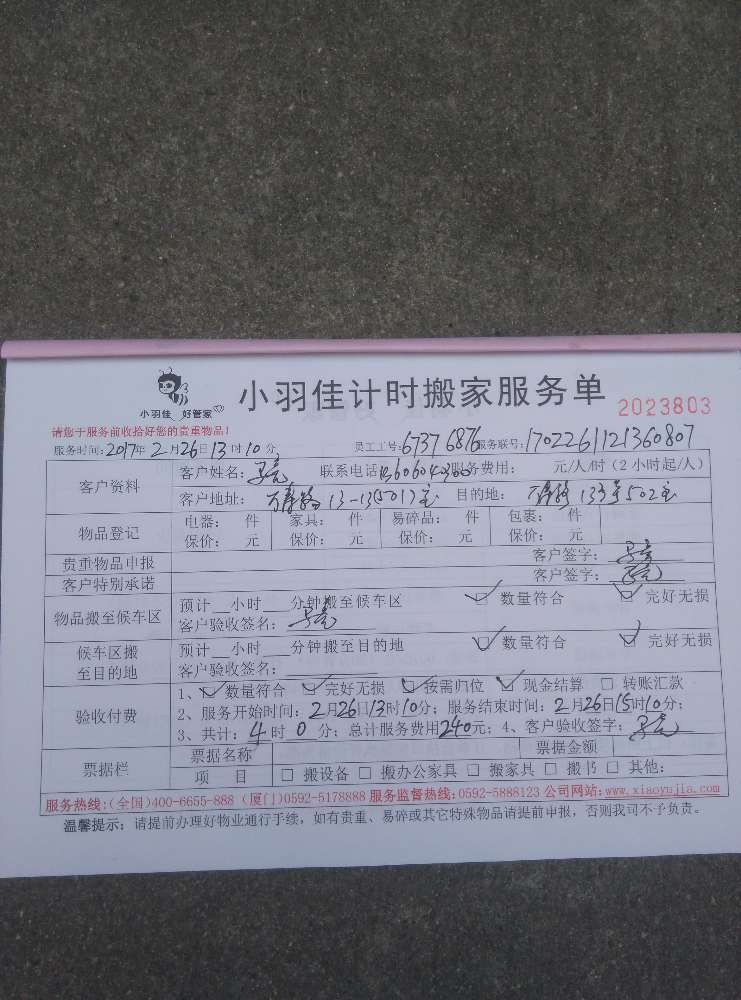 小羽佳 好管家
小羽佳计时搬家服务单
2023803
请您于服务前收拾好您的贵重物品！
服务时间：2017年2月26日13时10分 员工工号：6737 6876 服务联号：1702261121360807
客户资料
客户姓名： 联系电话 服务费用： 元/人/时（2小时起/人）
客户地址：万寿路13-13(501)室 目的地：万寿路133号502室
物品登记
电器： 件 家具： 件 易碎品： 件 包裹： 件
保价： 元 保价： 元 保价： 元 保价： 元
贵重物品申报 客户签字：
客户特别承诺 客户签字：
物品搬至候车区
预计__小时___分钟搬至候车区 数量符合 完好无损
客户验收签名：
候车区搬至目的地
预计__小时___分钟搬至目的地 数量符合 完好无损
客户验收签名：
验收付费
1、数量符合 完好无损 按需归位 现金结算 转账汇款
2、服务开始时间：2月26日13时10分；服务结束时间：2月26日15时10分；
3、共计：4时0分；总计服务费用240元；4、客户验收签字：
票据栏
票据名称 票据金额
项 目 搬设备 搬办公家具 搬家具 搬书 其他：
服务热线：(全国)400-6655-888 (厦门)0592-5178888 服务监督热线：0592-5888123 公司网站：www.xiaoyujia.com
温馨提示：请提前办理好物业通行手续，如有贵重、易碎或其它特殊物品请提前申报，否则我司不予负责。